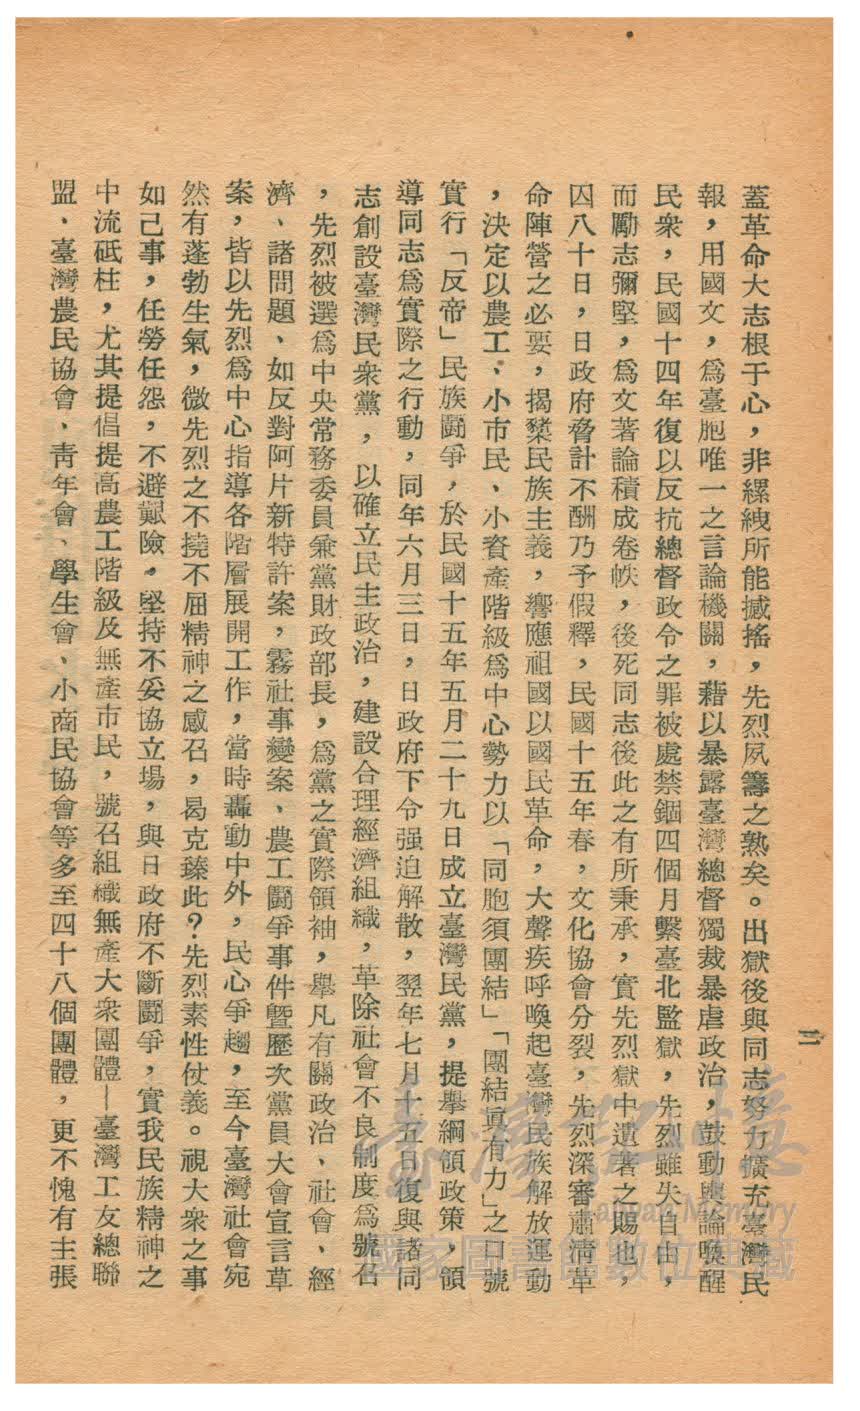 三
蓋革命大志根于心，非縲絏所能撼搖，先烈夙籌之熟矣。出獄後與同志努力擴充臺灣民
報，用國文，爲臺胞唯一之言論機關，藉以暴露臺灣總督獨裁暴虐政治，鼓動輿論喚醒
民衆，民國十四年復以反抗總督政令之罪被處禁錮四個月繫臺北監獄，先烈雖失自由，
而勵志彌堅，爲文著論積成卷帙，後死同志後此之有所秉承，實先烈獄中遺著之賜也，
囚八十日，日政府脅計不酬乃予假釋，民國十五年春，文化協會分裂，先烈深審肅淸革
命陣營之必要，揭櫫民族主義，響應祖國以國民革命，大聲疾呼喚起臺灣民族解放運動
，決定以農工、小市民、小資產階級爲中心勢力以「同胞須團結」「團結眞有力」之口號
實行「反帝」民族鬪爭，於民國十五年五月二十九日成立臺灣民黨，提舉綱領政策，領
導同志爲實際之行動，同年六月三日，日政府下令强迫解散，翌年七月十五日復與諸同
志創設臺灣民衆黨，以確立民主政治，建設合理經濟組織，革除社會不良制度爲號召
，先烈被選爲中央常務委員兼黨財政部長，爲黨之實際領袖，舉凡有關政治、社會、經
濟、諸問題、如反對阿片新特許案，霧社事變案、農工鬪爭事件暨歷次黨員大會宣言草
案，皆以先烈爲中心指導各階層展開工作，當時轟動中外，民心爭趨，至今臺灣社會宛
然有蓬勃生氣，微先烈之不撓不屈精神之感召，曷克臻此？先烈素性仗義。視大衆之事
如己事，任勞任怨，不避艱險。堅持不妥協立場，與日政府不斷鬪爭，實我民族精神之
中流砥柱，尤其提倡提高農工階級及無產市民，號召組織無產大衆團體—臺灣工友總聯
盟、臺灣農民協會、靑年會、學生會、小商民協會等多至四十八個團體，更不愧有主張
臺灣記憶
Taiwan Memory
國家圖書館數位典藏